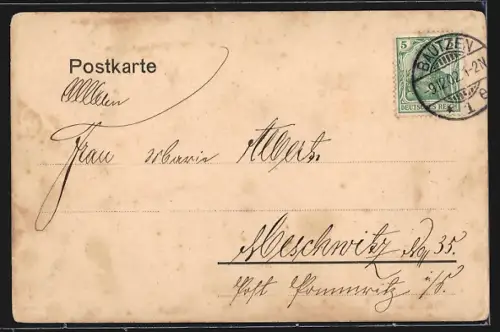 Postkarte
5
DEUTSCHES REICH
BAUTZEN
9.12.02. 1-2N.
* 1 e
Frau Marie Albert.
Meschwitz No. 35.
Post Pommritz i/S.